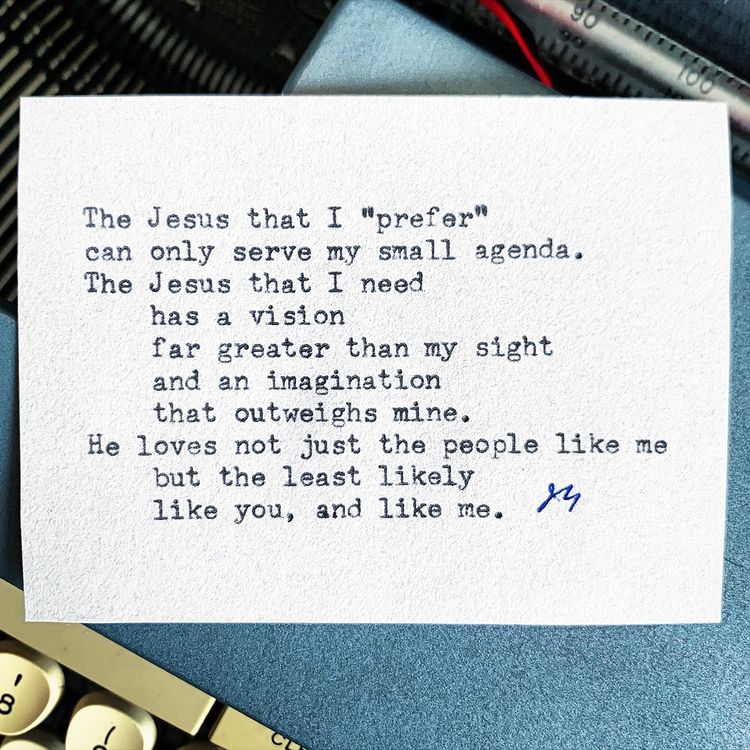 90
100
The Jesus that I "prefer"
can only serve my small agenda.
The Jesus that I need
has a vision
far greater than my sight
and an imagination
that outweighs mine.
He loves not just the people like me
but the least likely
like you, and like me.
8